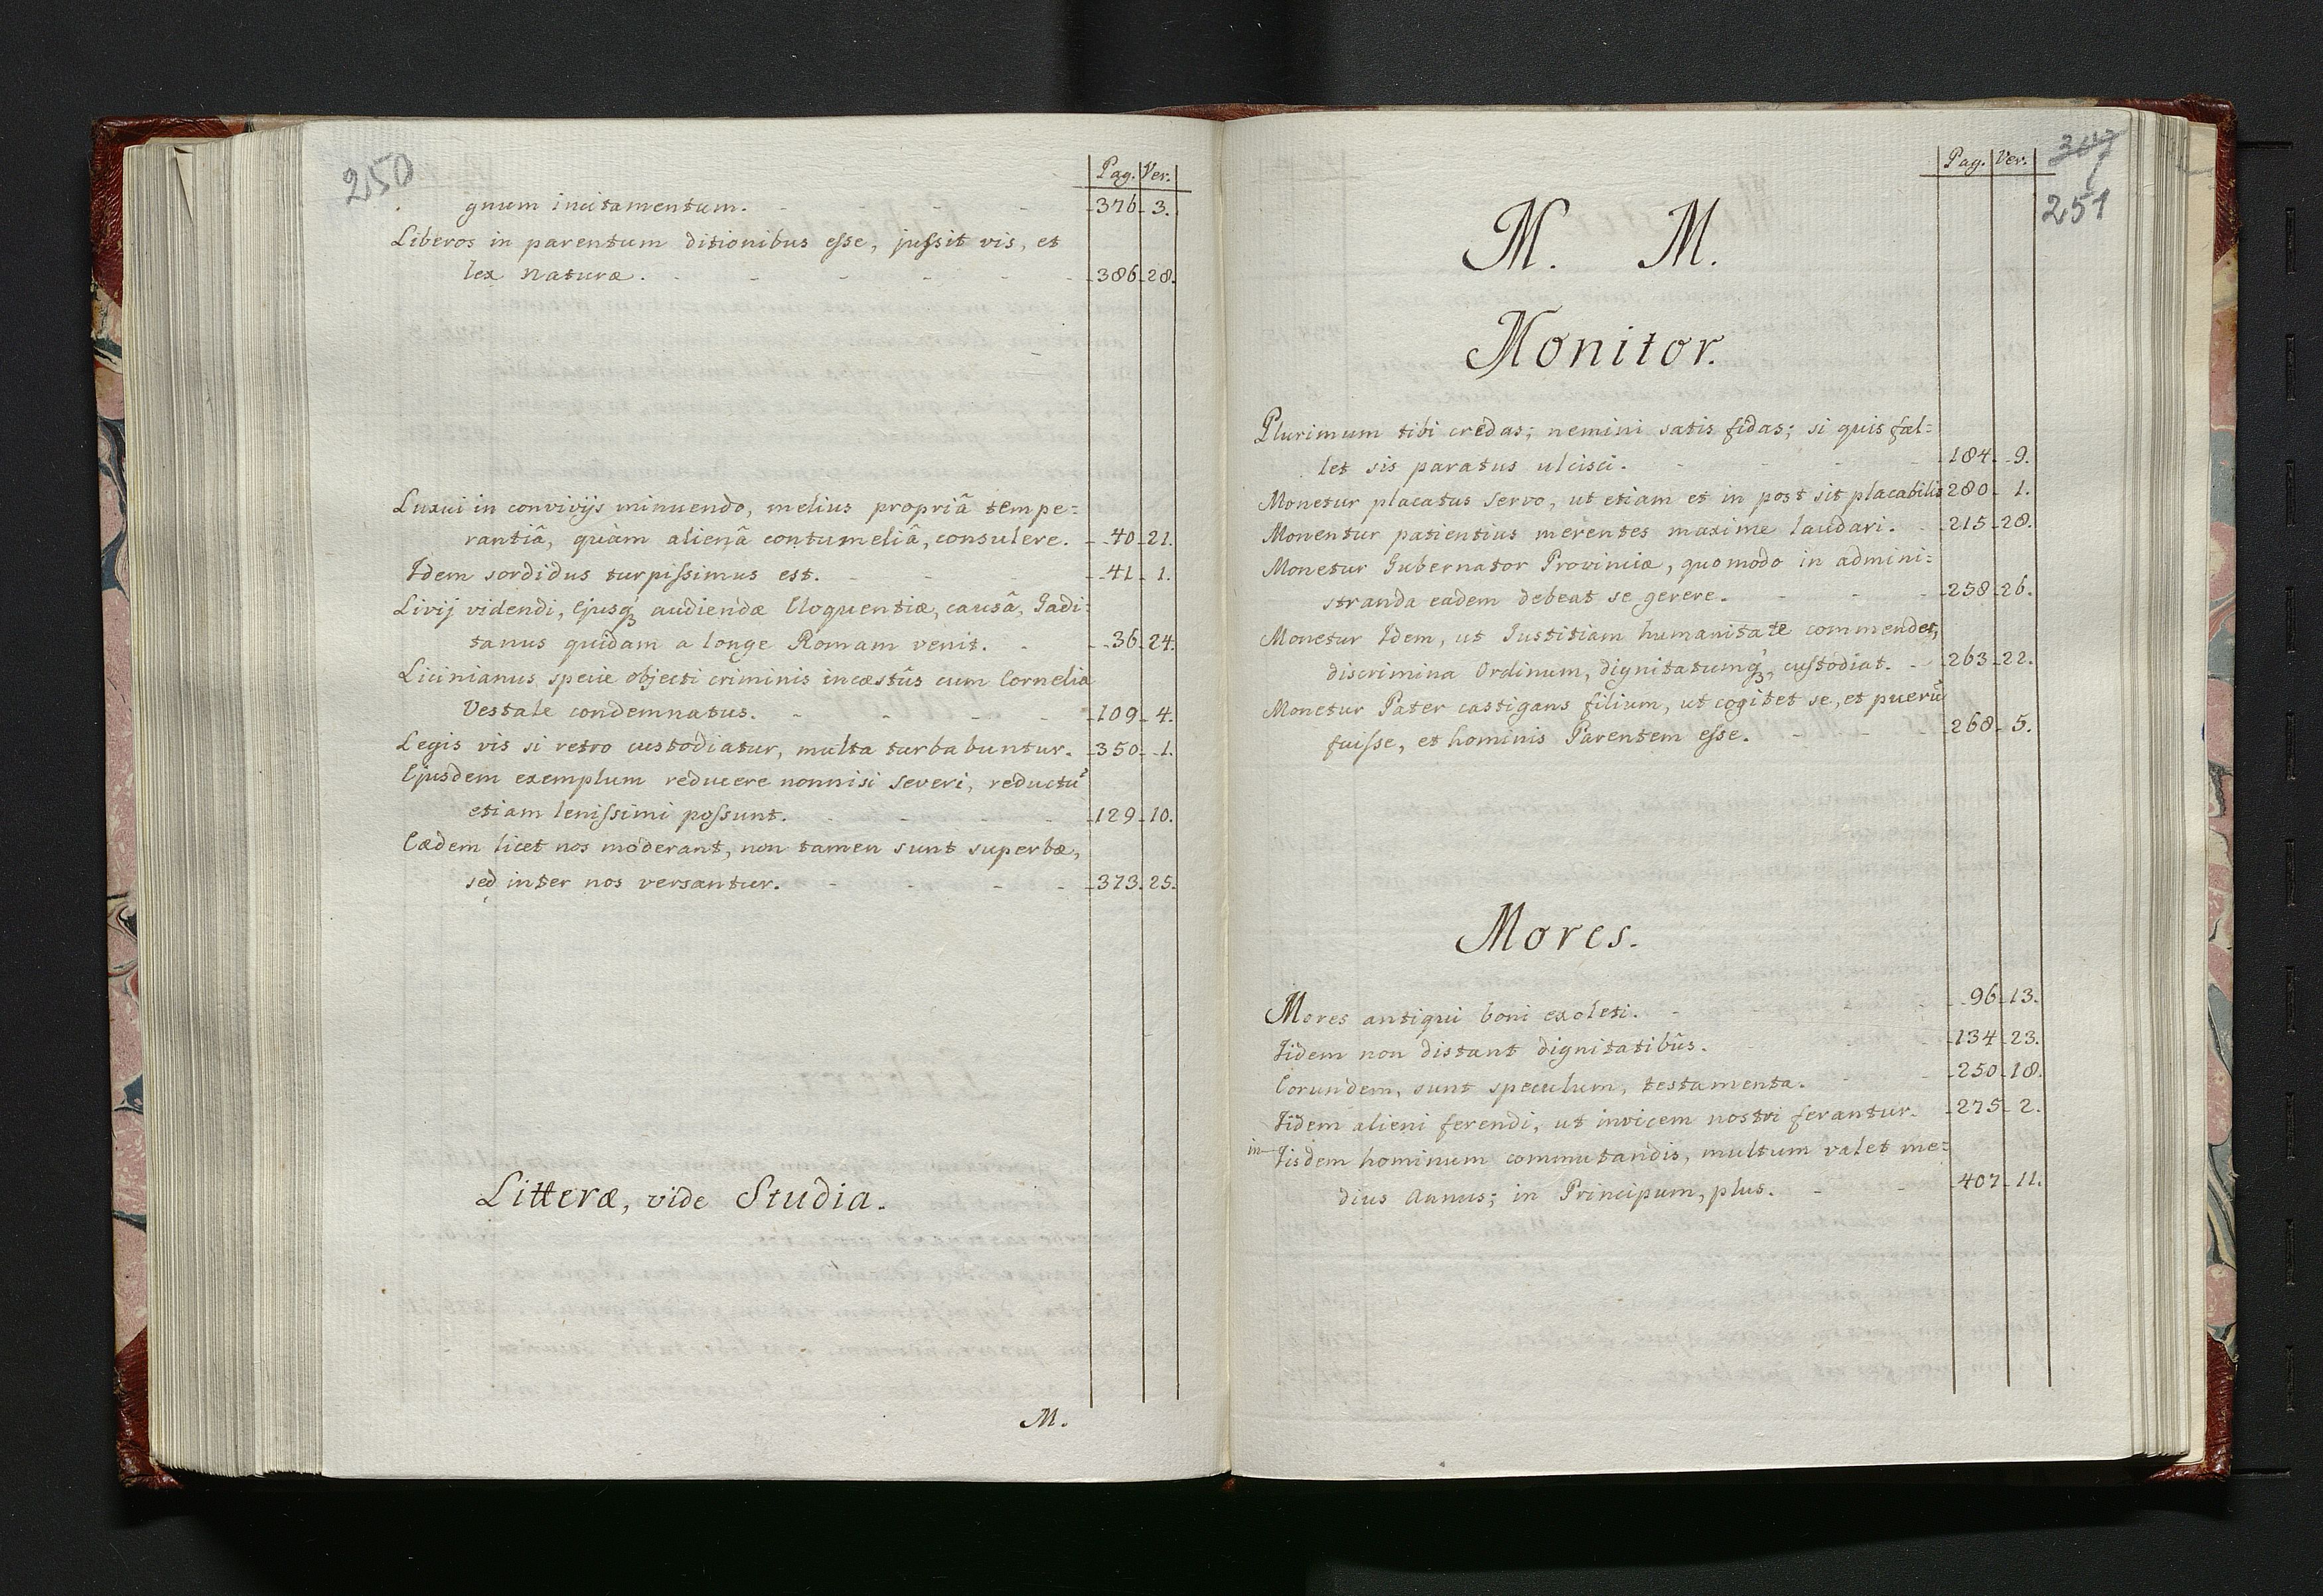 250
Pag. Ver.
gnum incitamentum. 376. 3.
Liberos in parentum ditionibus esse, jussit vis, et
lex naturæ. 386. 28.
Luxui in convivijs minuendo, melius propriâ tempe=
rantiâ, quàm alienâ contumeliâ, consulere. 40. 21.
Idem sordidus turpissimus est. 41. 1.
Livij videndi, Ejusq3 audiendæ Eloquentiæ, causâ, Gadi=
tanus quidam a longe Romam venit. 36. 24.
Licinianus specie objecti criminis incæstûs cum Cornelia
Vestale condemnatus. 109. 4.
Legis vis si retro custodiatur, multa turbabuntur. 350. 1.
Ejusdem exemplum reducere nonnisi severi, reductũ
etiam lenissimi possunt. 129. 10.
Eædem licet nos moderant, non tamen sunt superbæ,
sed inter nos versantur. 373. 25.
Litteræ, vide Studia.
M.
Pag. Ver.
251
M. M.
Monitor.
Plurimum tibi credas; nemini satis fidas; si quis fal=
let sis paratus ulcisci. 184. 9.
Monetur placatus servo, ut etiam et in post sit placabilis 280. 1.
Monentur patientius merentes maxime laudari. 215. 28.
Monetur Gubernator Provinciæ, quomodo in admini=
stranda eadem debeat se gerere. 258. 26.
Monetur Idem, ut Justitiam humanitate commendet,
discrimina Ordinum, dignitatumq3, custodiat. 263. 22.
Monetur Pater castigans filium, ut cogitet se, et puerũ
fuisse, et hominis Parentem esse. 268. 5.
Mores.
Mores antiqui boni exoleti. 96. 13.
Iidem non distant dignitatibûs. 134. 23.
Eorundem, sunt speculum, testamenta. 250. 18.
Iidem alieni ferendi, ut invicem nostri ferantur. 275. 2.
in Iisdem hominum commutandis, multum valet me=
dius Annus; in Principum, plus. 407. 11.